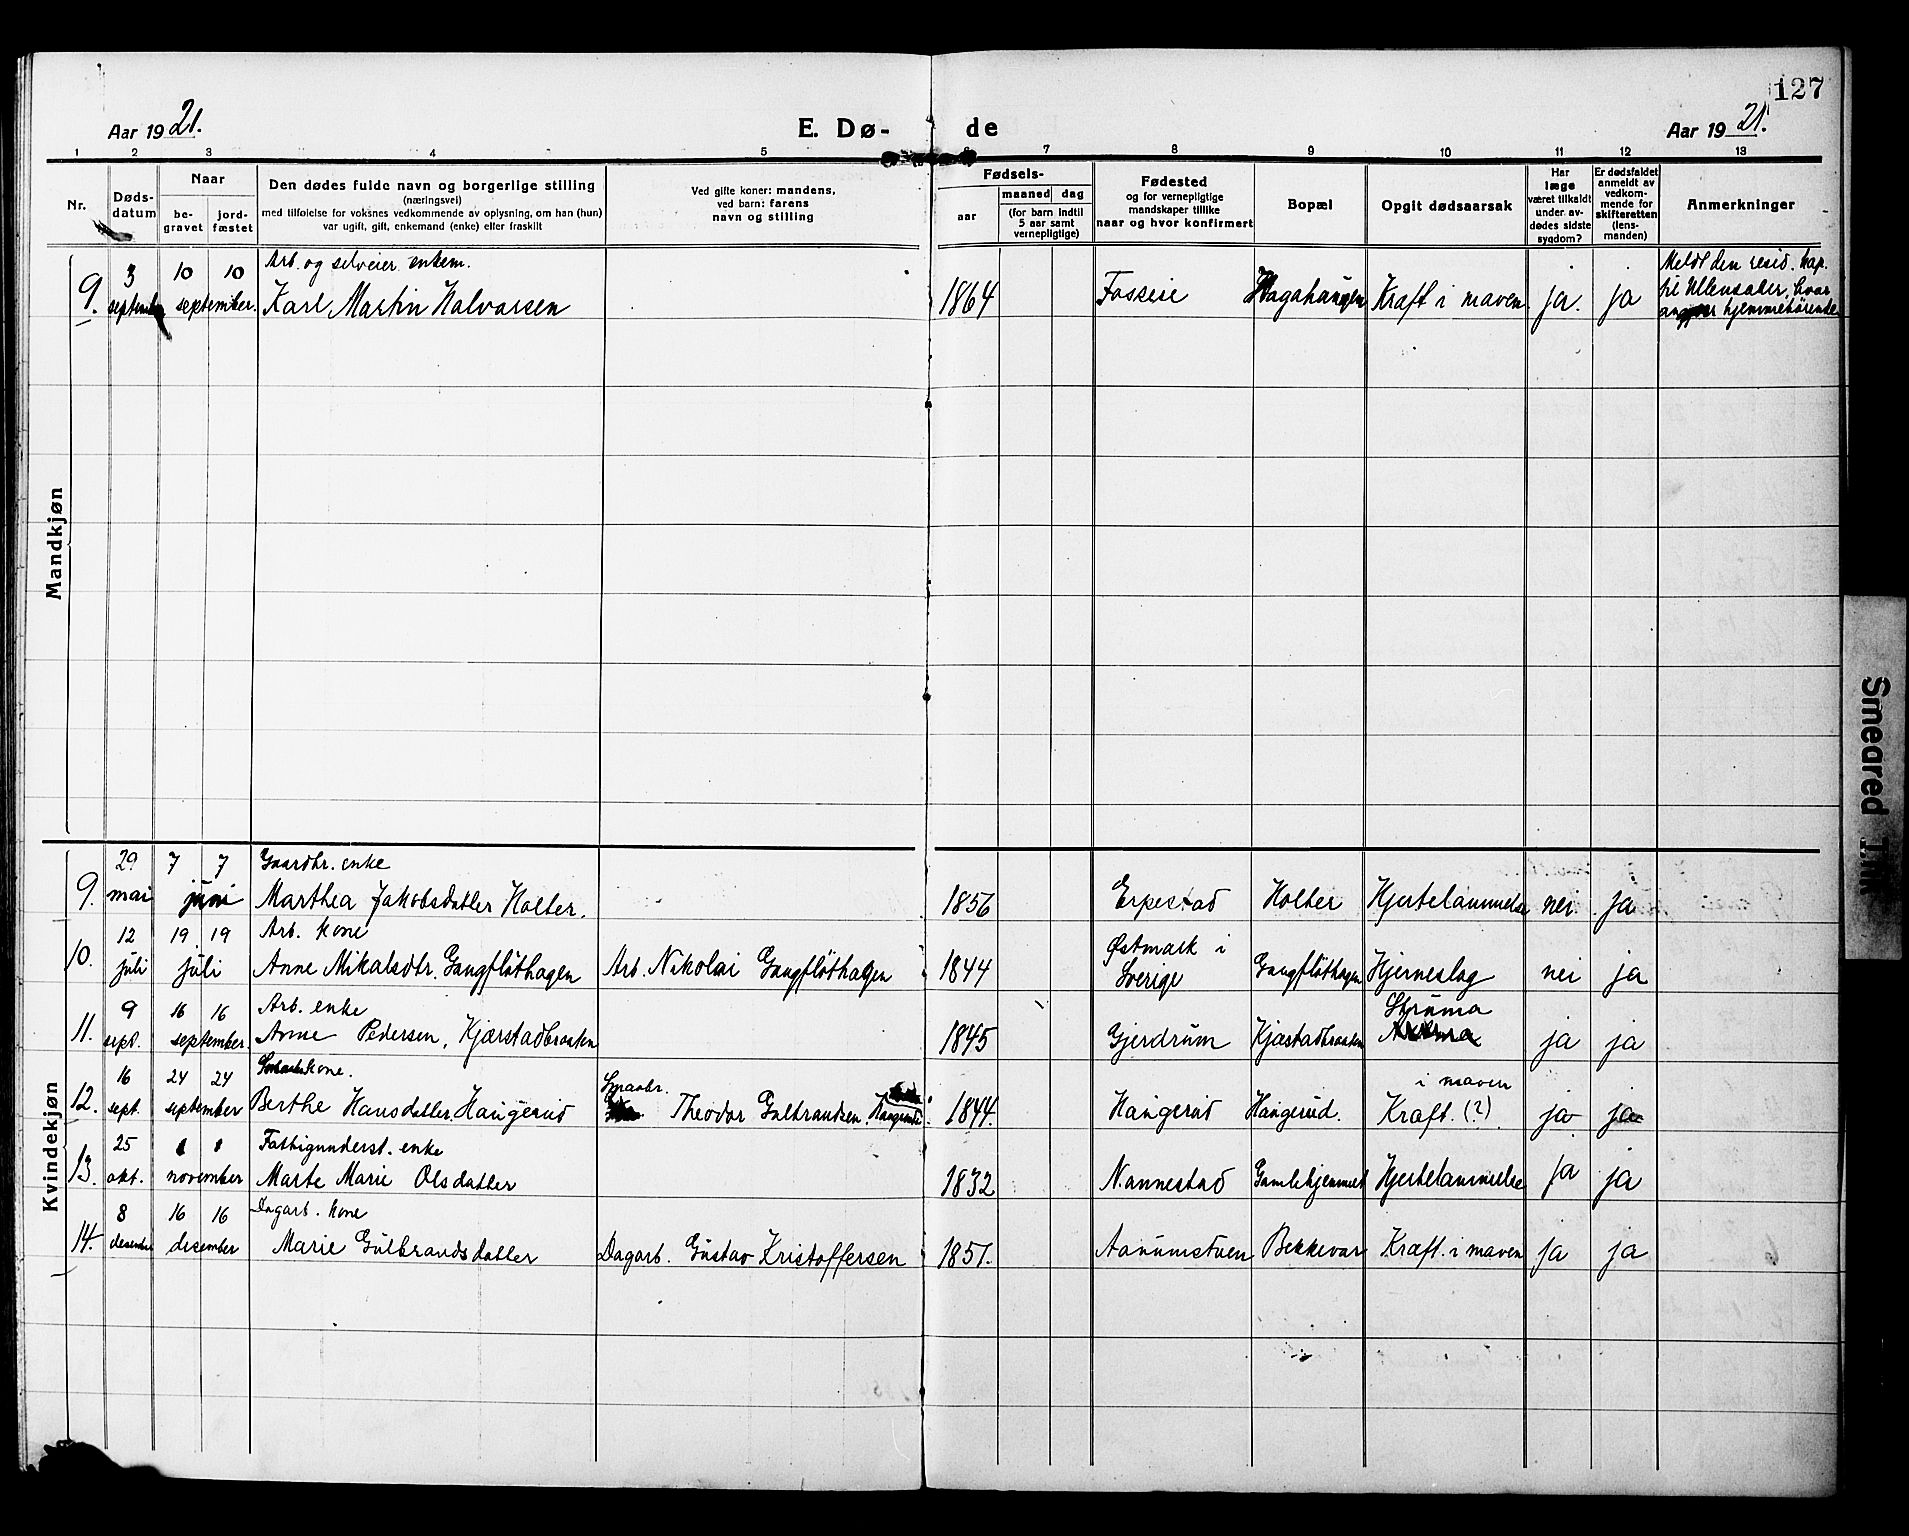 127
Aar 1921.
E. Dø-
de
Aar 1921.
1 2 3 4 5 6 7 8 9 10 11 12 13
Nr.
Døds-
datum
Naar
be-
gravet
jord-
fæstet
Den dødes fulde navn og borgerlige stilling
(næringsvei)
med tilføielse for voksnes vedkommende av oplysning, om han (hun)
var ugift, gift, enkemand (enke) eller fraskilt
Ved gifte koner: mandens,
ved barn: farens
navn og stilling
Fødsels-
aar
maaned dag
(for barn indtil
5 aar samt
vernepligtige)
Fødested
og for vernepligtige
mandskaper tillike
naar og hvor konfirmert
Bopæl
Opgit dødsaarsak
Har
læge
været tilkaldt
under av-
dødes sidste
sygdom?
Er dødsfaldet
anmeldt av
vedkom-
mende for
skifteretten
(lens-
manden)
Anmerkninger
Mandkjøn
3 10 10 Arb. og selveier enkem. Meldt den resid. kap.
til Ullensaker, hvor
9. september september. Karl Martin Halvorsen 1864 Hagahaugen Kræft i maven ja. ja hjemmehørende
Kvindekjøn
29 7 7 Gaardbr. enke
9. mai juni Marthea Jakobsdatter Holter. 1856 Erpestad Holter Hjertelammelse nei. ja
12 19 19 Arb. kone Østmark i
10. juli juli Anne Mikalsdtr. Gangfløthagen Arb. Nikolai Gangfløthagen 1844 Sverige Gangfløthagen Hjerneslag nei ja
9 16 16 Arb. enke Struma
11. sept. september. Anne Pedersen, Kjærstadbraaten 1845 Gjerdrum Kjæstadbraaten ja ja
16 24 24 kone. Smaabr. i maven
12. sept. september Berthe Hansdatter, Haugerud Theodor Gulbrandsen, Haugerud. 1844. Haugerud Haugerud. Kræft. (?) ja ja
25 1 1 Fattigunderst. enke
13. okt. november Marte Marie Olsdatter 1832 Nannestad Gamlehjemmet Hjertelammelse ja ja
8 16 16 Dagarb. kone
14. desember desember Marie Gulbrandsdatter Dagarb. Gustav Kristoffersen 1851. Aarumstuen Bekkevar Kræft. i maven ja ja
Smeared Ink